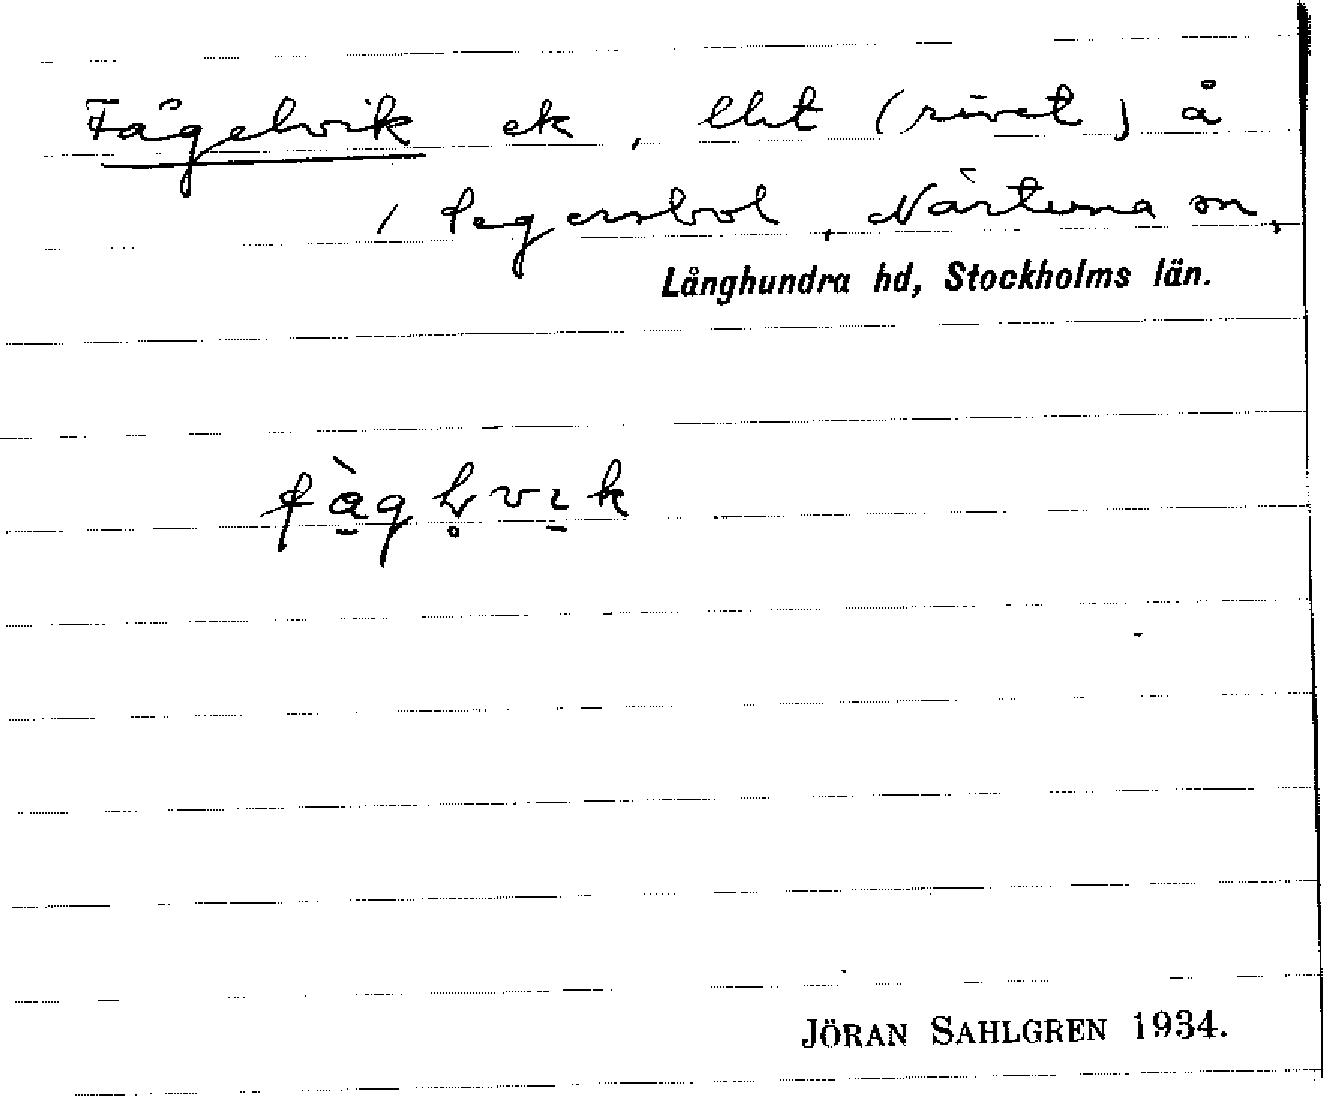 Fågelvik ek, lht (rivet) å
/ Segersbol, Närtuna sn,
Långhundra hd, Stockholms län.
fàgl̥vik
JÖRAN SAHLGREN 1934.